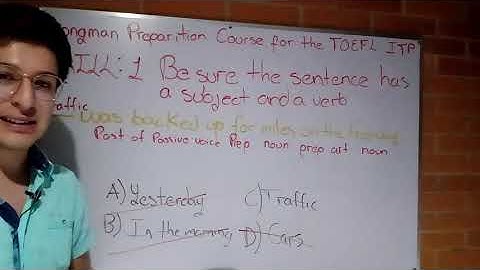 ongman Preparition Course for the TOEFL ITP
ILL: 1 Be sure the sentence has
a subject and a verb
affic
was backed up for miles on the freeway
Part of Passive voice Prep noun prep art noun
A) Yesterday C) Traffic
B) In the morning D) Cars